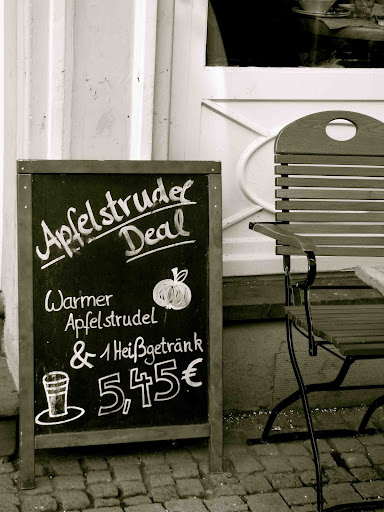 Apfelstrudel
Deal
Warmer
Apfelstrudel
& 1 Heißgetränk
5,45 €